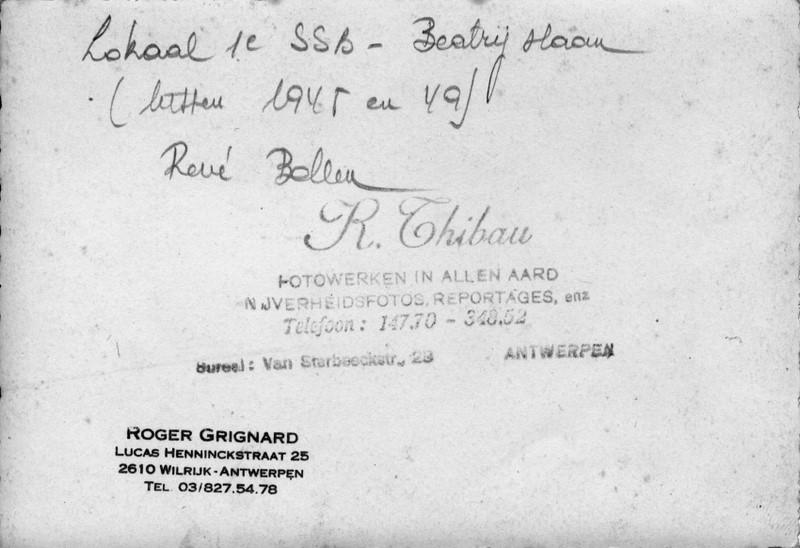 Lokaal 1e SSB - Beatrijslaan
(tussen 1945 en 49)
René Bellen
R. Thibau
FOTOWERKEN IN ALLEN AARD
NIJVERHEIDSFOTOS, REPORTAGES, enz
Telefoon: 147.70 - 348.52
Bureel: Van Sterbeeckstr., 23 ANTWERPEN
ROGER GRIGNARD
LUCAS HENNINCKSTRAAT 25
2610 WILRIJK-ANTWERPEN
TEL 03/827.54.78